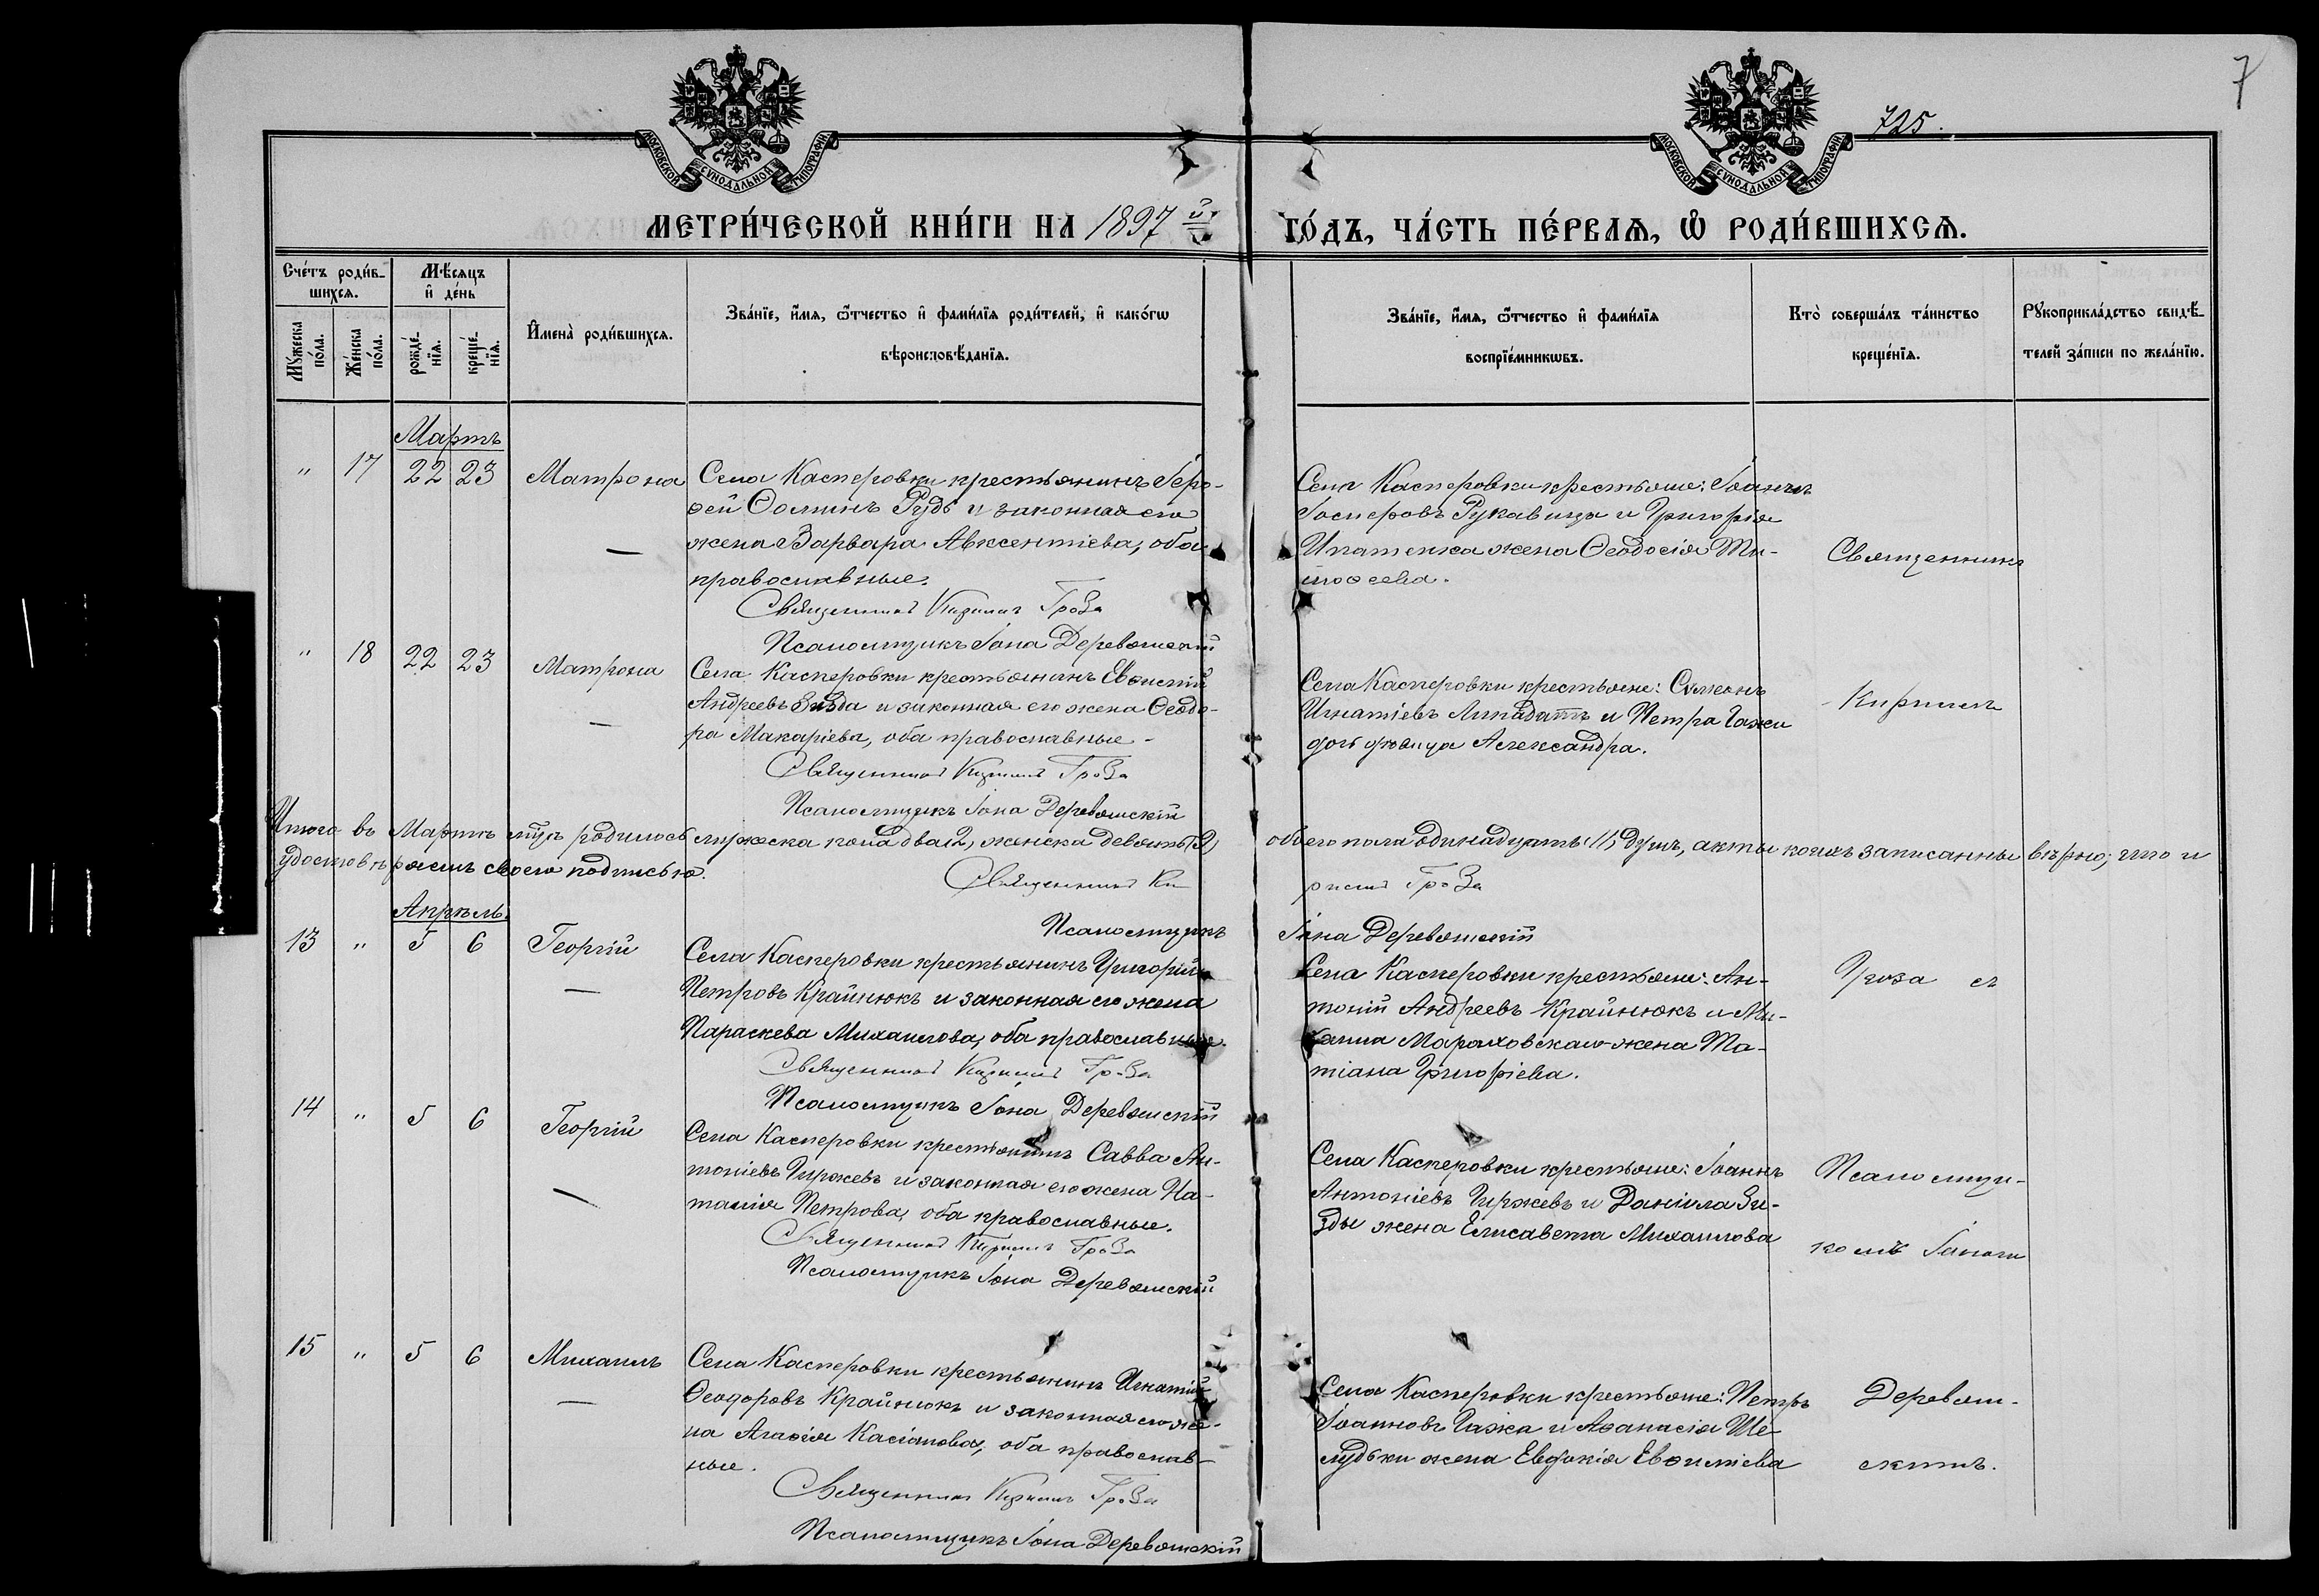 7
725.
МОСКОВСКОЙ СѴНОДАЛЬНОЙ ТИПОГРАФІИ
МОСКОВСКОЙ СѴНОДАЛЬНОЙ ТИПОГРАФІИ
МЕТРИ́ЧЕСКОЙ КНИ́ГИ НА 1897 й
ГО́ДЪ, ЧА́СТЬ ПЕ́РВАѦ, Ѡ РОДИ́ВШИХСѦ.
Сче́тъ роди́в-
шихсѧ.
Мꙋжеска по́ла.
Же́нска по́ла.
Мѣ́сѧцъ
и де́нь
рожде́-нїѧ.
креще́-нїѧ.
Имена̀ роди́вшихсѧ.
Зва́нїе, и́мѧ, ѻ́тчество и фами́лїѧ роди́телей, и како́гѡ
вѣроисповѣ́данїѧ.
Зва́нїе, и́мѧ, ѻ́тчество и фами́лїѧ
воспрїе́мникѡвъ.
Кто̀ соверша́лъ та́инство
креще́нїѧ.
Рꙋкоприкла́дство свидѣ́-
телей за́писи по жела́нїю.
Мартъ
" 17 22 23 Матрона
Села Касперовки крестьянинъ
ѳей Ѳоминъ Рудь и законная его
жена Варвара Авксентіева, оба
православные.
Священникъ Кириллъ Гроза
Псаломщикъ Іона Деревянскій
Села Касперовки крестьяне: Іоаннъ
Іосифовъ Рукавица и Григорія
Игнатенка жена Ѳеодосія Ти-
моѳеева.
Священникъ
" 18 22 23 Матрона
Села Касперовки крестьянинъ Евѳимій
Андреевъ Зызда и законная его жена Ѳеодо-
ра Макаріева, оба православные.
Священникъ Кириллъ Гроза
Псаломщикъ Іона Деревянскій
Села Касперовки крестьяне: Симеонъ
Игнатіевъ и Петра Гажи
дочь дѣвица Александра.
Кириллъ
Итого въ Мартѣ мцѣ родилось мужеска пола два 2, женска девять (9) обоего пола одинадцать (11) душъ, акты коихъ записанны вѣрно; что и
удостовѣряемъ своею подписью.
Священникъ Кириллъ Гроза
Псаломщикъ Іона Деревянскій
Апрѣль
13 " 5 6 Георгій
Села Касперовки крестьянинъ Григорій
Петровъ Крайнюкъ и законная его жена
Параскева Михаилова, оба православные.
Священникъ Кириллъ Гроза
Псаломщикъ Іона Деревянскій
Села Касперовки крестьяне: Ан-
тоній Андреевъ Крайнюкъ и Ми-
хаила жена Та-
тіана Григоріева.
Гроза съ
14 " 5 6 Георгій
Села Касперовки крестьянинъ Савва Ан-
тоніевъ Гиржевъ и законная его жена На-
талія Петрова, оба православные.
Священникъ Кириллъ Гроза
Псаломщикъ Іона Деревянскій
Села Касперовки крестьяне: Іоаннъ
Антоніевъ Гиржевъ и Даніила Зы-
зды жена Елисавета Михаилова
Псаломщи-
комъ Іоною
15 " 5 6 Михаилъ
Села Касперовки крестьянинъ Игнатій
Ѳеодоровъ Крайнюкъ и законная его же-
на Агаѳія Касіанова, оба православ-
ные.
Священникъ Кириллъ Гроза
Псаломщикъ Іона Деревянскій
Села Касперовки крестьяне: Петръ
Іоанновъ Гажа и Аѳанасія Ше-
лудьки жена Евдокія Евѳиміева
Деревян-
скимъ.